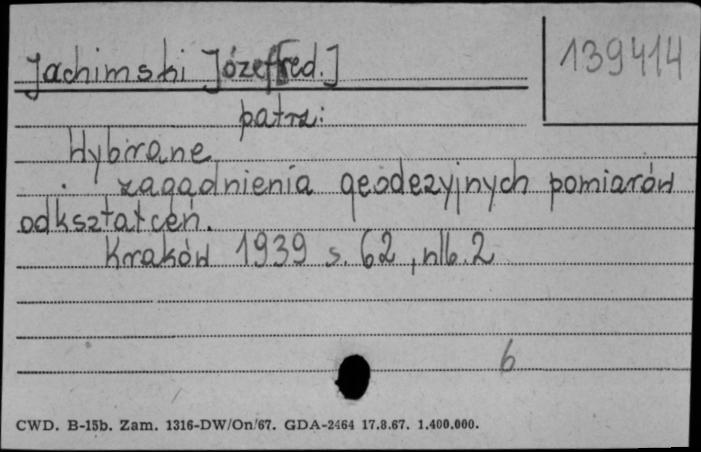 Jachimski Józef [red.]
139414
patrz:
Wybrane
zagadnienia geodezyjnych pomiarów
odkształceń.
Kraków 1939 s. 62, nlb. 2
6
CWD. B-15b. Zam. 1316-DW/On/67. GDA-2464 17.8.67. 1.400.000.